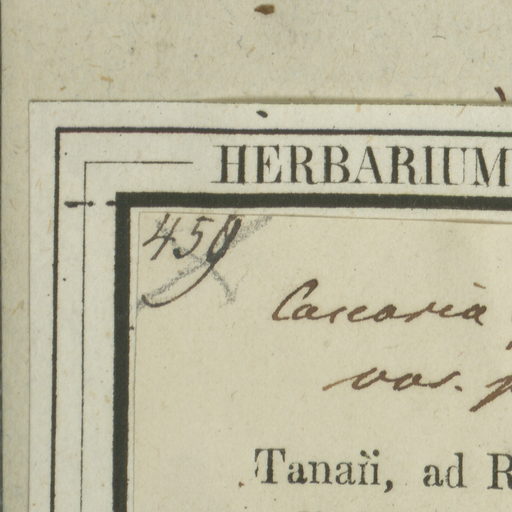 HERBARIUM
459
Casearia
var. p
Tanaïi, ad R